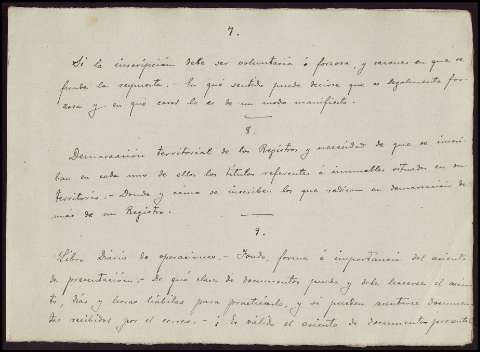 7.
Si la inscripción debe ser voluntaria ó forzosa, y razones en que se
funda la respuesta. - En qué sentido puede decirse que es legalmente for-
zosa y en qué casos lo es de un modo manifiesto.
8.
Demarcación territorial de los Registros y necesidad de que se inscri-
ban en cada uno de ellos los títulos referentes á inmuebles situados en su
territorio. - Donde y cómo se inscriben los que radican en demarcación de
más de un Registro.
9.
Libro Diario de operaciones. - Fondo, forma é importancia del asiento
de presentación. - De qué clase de documentos puede y debe hacerse el asien-
to, días y horas hábiles para practicarlo, y si pueden admitirse documen-
tos recibidos por el correo. - ¿Es válido el asiento de documentos presenta-